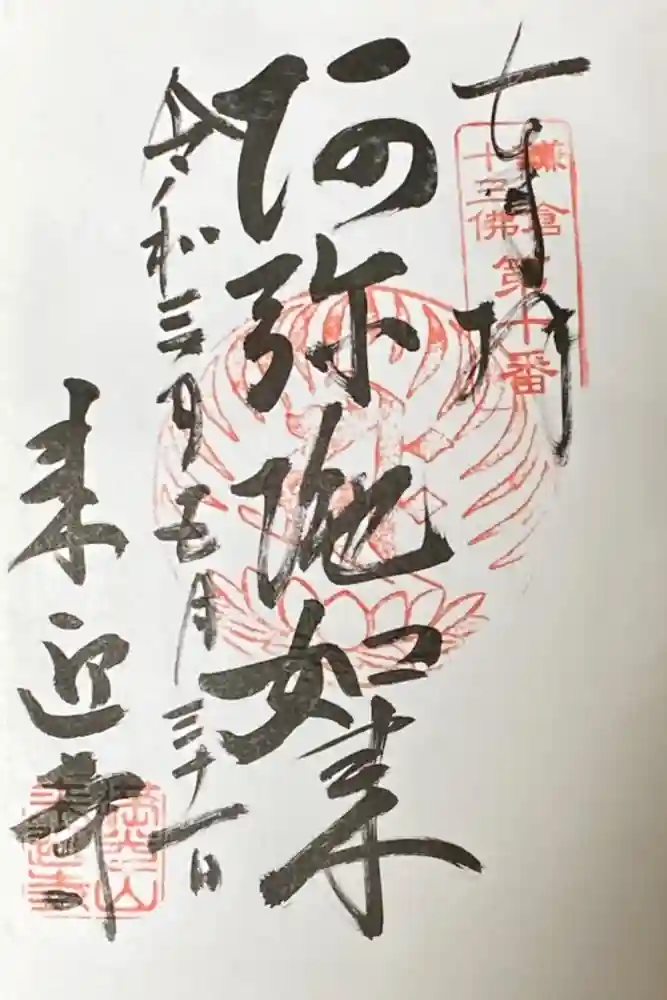 奉拝
鎌倉
十三佛
第十番
阿弥陀如来
令和三年五月三十一日
来迎寺
満光山
来迎寺